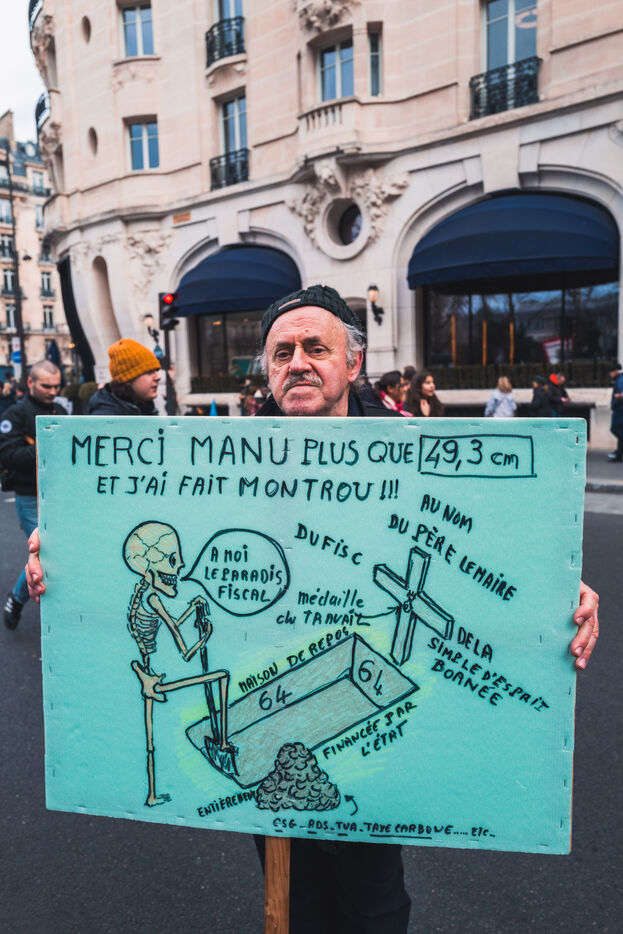 MERCI MANU PLUS QUE 49,3 cm
ET J'AI FAIT MONTROU !!!
A MOI
LE PARADIS
FISCAL
DU FISC
AU NOM
DU PÈRE LEMAIRE
médaille
du TRAVAIL
DE LA
SIMPLE D'ESPRIT
BORNÉE
MAISON DE REPOS
64
64
ENTIÈREMENT
FINANCÉE PAR
L'ÉTAT
CSG_RDS_TVA_TAXE CARBONE..... etc..